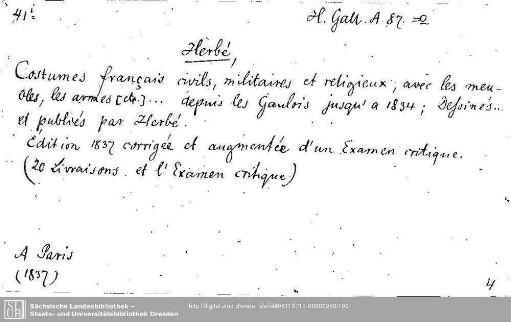 41:
H. Gall. A 87.
Herbé,
Costumes français civils, militaires et religieux, avec les meu-
bles, les armes [etc.]... depuis les Gaulois jusqu'a 1834; Dessinés...
et publiés par Herbé.
Edition 1837 corrigée et augmentée d'un Examen critique.
(20 Livraisons et l'Examen critique)
A Paris
(1837)
4
Sächsische Landesbibliothek –
Staats- und Universitätsbibliothek Dresden